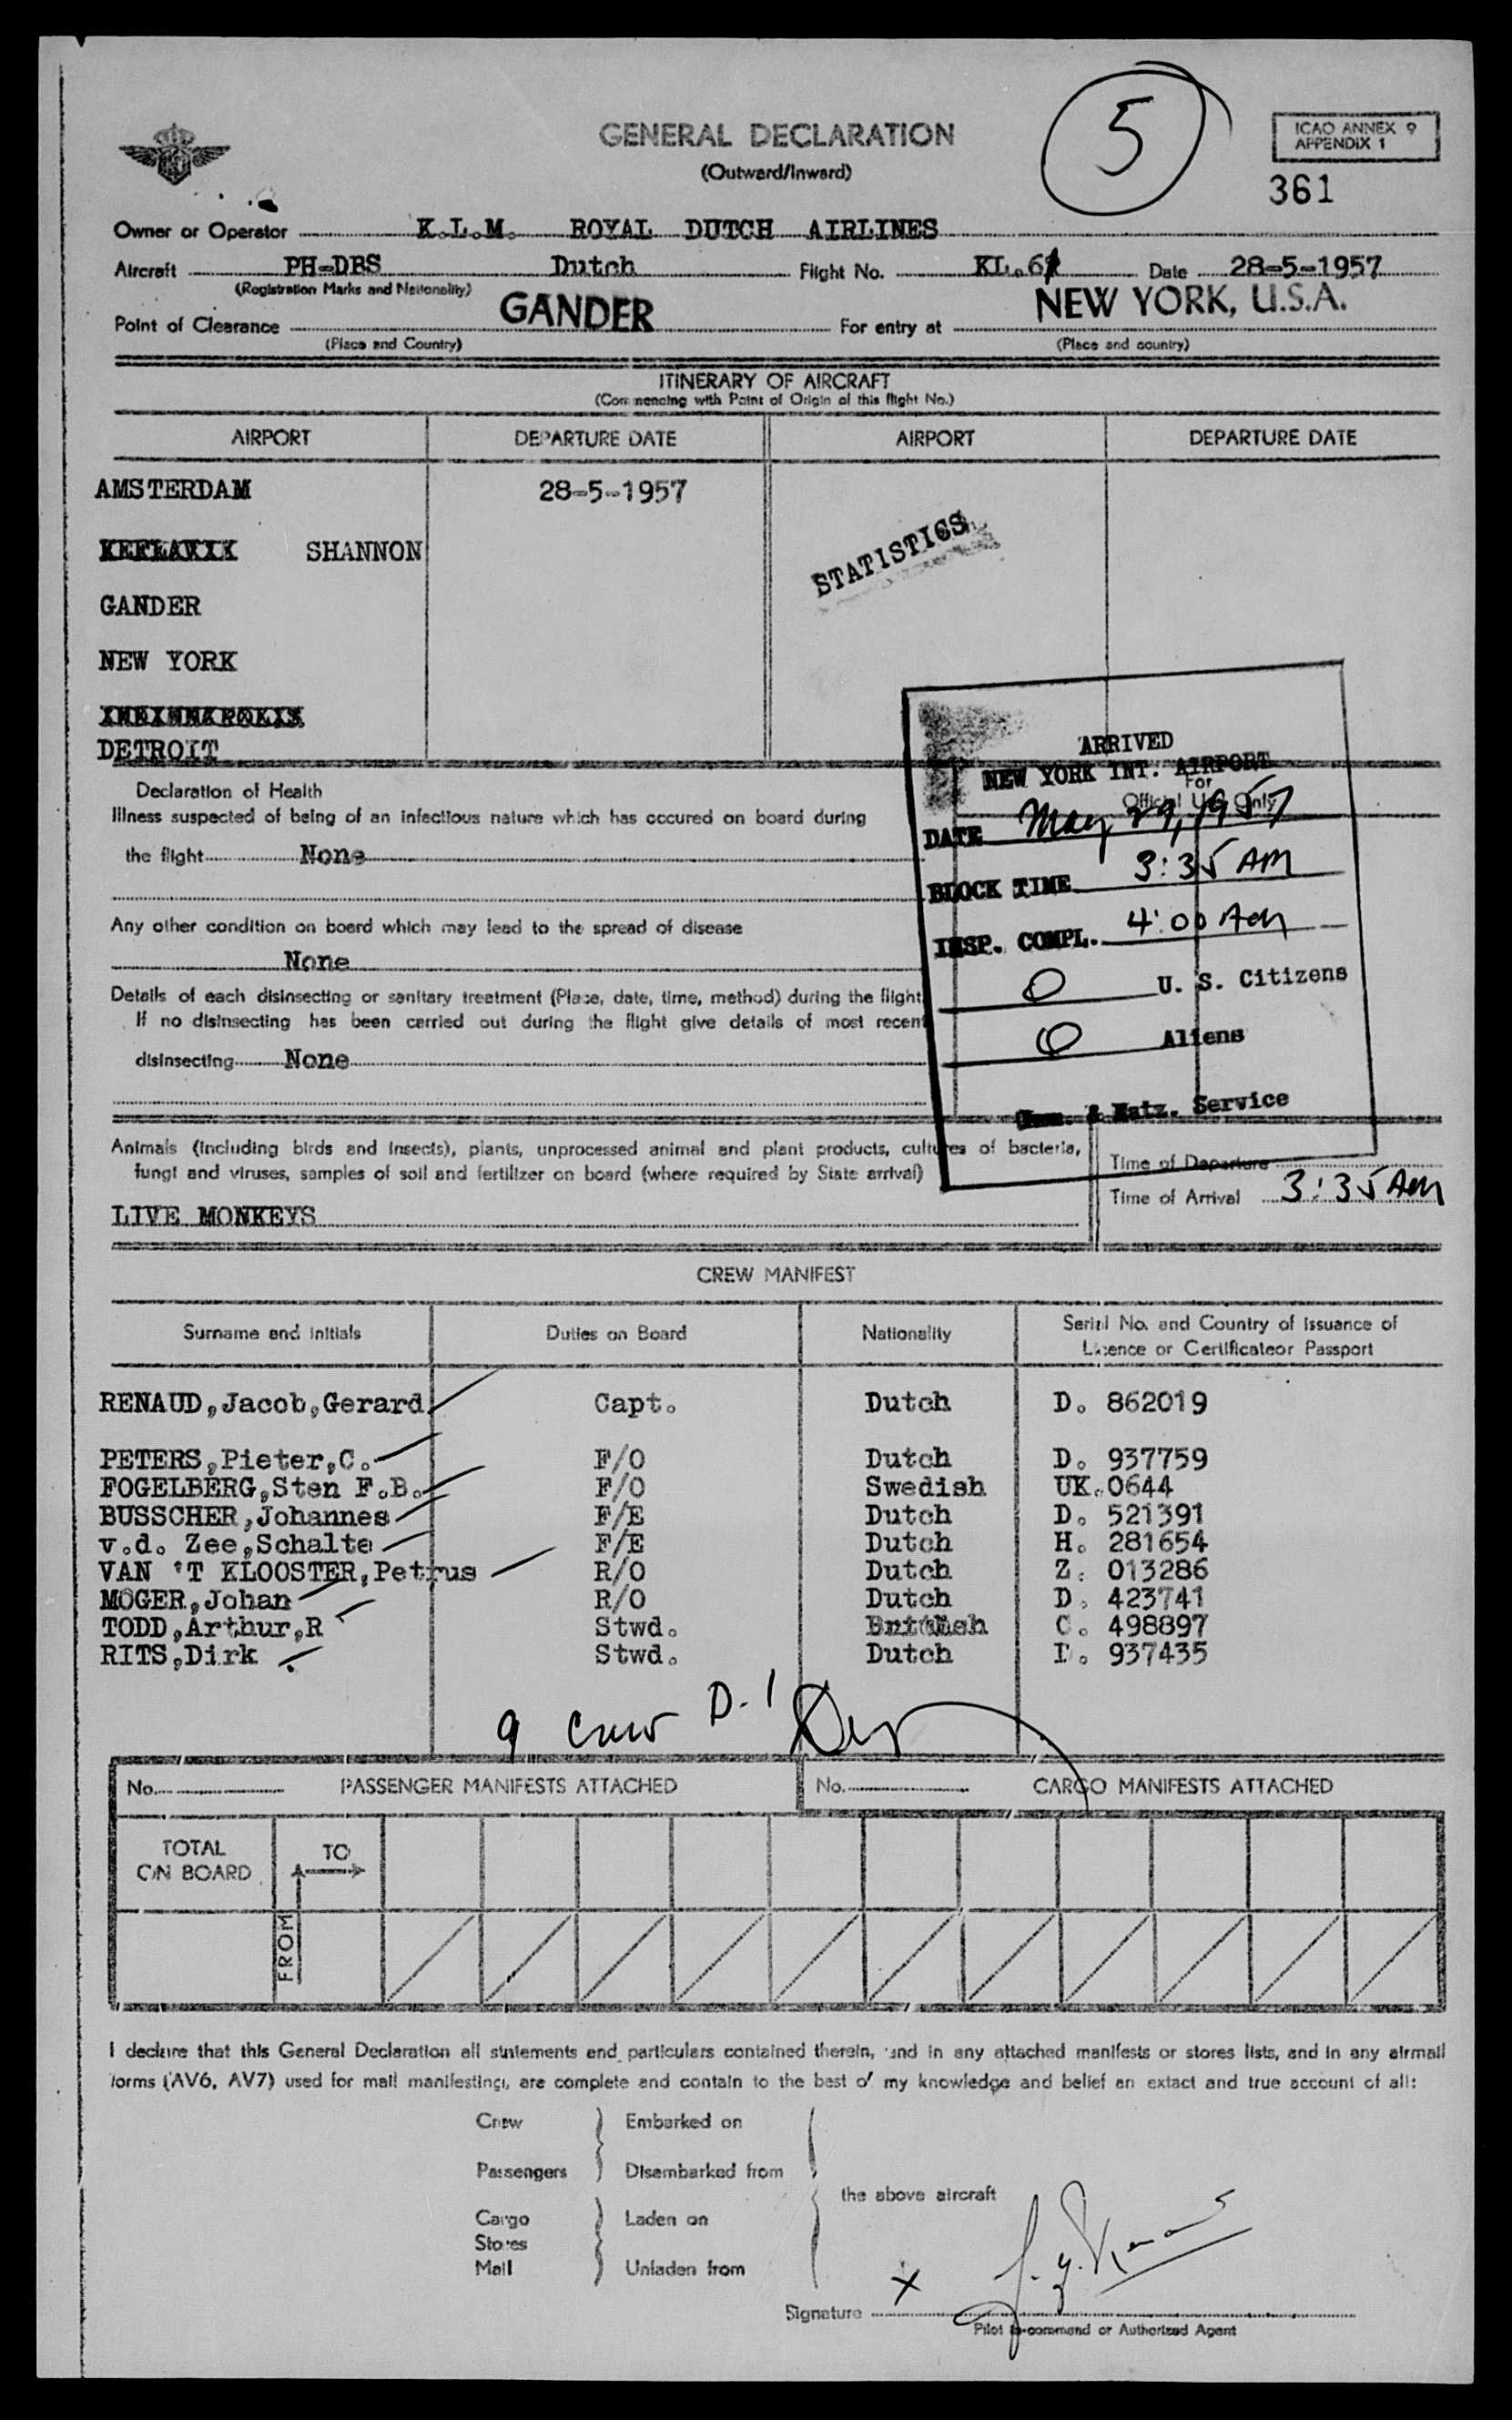 GENERAL DECLARATION
(Outward/Inward)
5
ICAO ANNEX 9
APPENDIX 1
361
Owner or Operator K.L.M. ROYAL DUTCH AIRLINES
Aircraft PH-DBS Dutch Flight No. KL.6 Date 28-5-1957
(Registration Marks and Nationality)
Point of Clearance GANDER For entry at NEW YORK, U.S.A.
(Place and Country) (Place and country)
ITINERARY OF AIRCRAFT
(Commencing with Point of Origin of this flight No.)
AIRPORT DEPARTURE DATE AIRPORT DEPARTURE DATE
AMSTERDAM 28-5-1957
SHANNON
STATISTICS
GANDER
NEW YORK
DETROIT
ARRIVED
NEW YORK INT. AIRPORT
For
Official U.S. Only
DATE May 29, 1957
BLOCK TIME 3:35 AM
INSP. COMPL. 4:00 AM
0 U. S. Citizens
0 Aliens
& Natz. Service
Declaration of Health
Illness suspected of being of an infectious nature which has occured on board during
the flight None
Any other condition on board which may lead to the spread of disease
None
Details of each disinsecting or sanitary treatment (Place, date, time, method) during the flight
If no disinsecting has been carried out during the flight give details of most recent
disinsecting None
Animals (including birds and insects), plants, unprocessed animal and plant products, cultures of bacteria,
fungi and viruses, samples of soil and fertilizer on board (where required by State arrival)
LIVE MONKEYS
Time of Departure
Time of Arrival 3:35 AM
CREW MANIFEST
Surname and initials Duties on Board Nationality Serial No. and Country of Issuance of
Licence or Certificateor Passport
RENAUD,Jacob,Gerard Capt. Dutch D. 862019
PETERS,Pieter,C. F/O Dutch D. 937759
FOGELBERG,Sten F.B. F/O Swedish UK.0644
BUSSCHER,Johannes F/E Dutch D. 521391
v.d. Zee,Schalte F/E Dutch H. 281654
VAN 'T KLOOSTER,Petrus R/O Dutch Z. 013286
MOGER,Johan R/O Dutch D. 423741
TODD,Arthur,R Stwd. British C. 498897
RITS,Dirk Stwd. Dutch D. 937435
9 crew D-1
No. PASSENGER MANIFESTS ATTACHED No. CARGO MANIFESTS ATTACHED
TOTAL
ON BOARD
TO
FROM
I declare that this General Declaration all statements and particulars contained therein, and in any attached manifests or stores lists, and in any airmail
forms (AV6, AV7) used for mail manifesting, are complete and contain to the best of my knowledge and belief an extact and true account of all:
Crew Embarked on
Passengers Disembarked from
the above aircraft
Cargo Laden on
Stores
Mail Unladen from
X
Signature
Pilot in-command or Authorized Agent